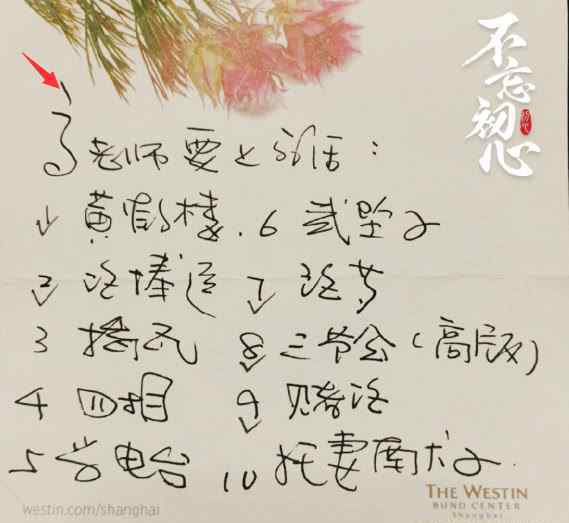 不忘初心
高老师要之活:
1 黄鹤楼. 6 武坠子
2 论捧逗 7 论梦
3 揭瓦 8 三节会(高版)
4 四相 9 赌论
5 学电台 10 托妻献子.
westin.com/shanghai
THE WESTIN
BUND CENTER
Shanghai